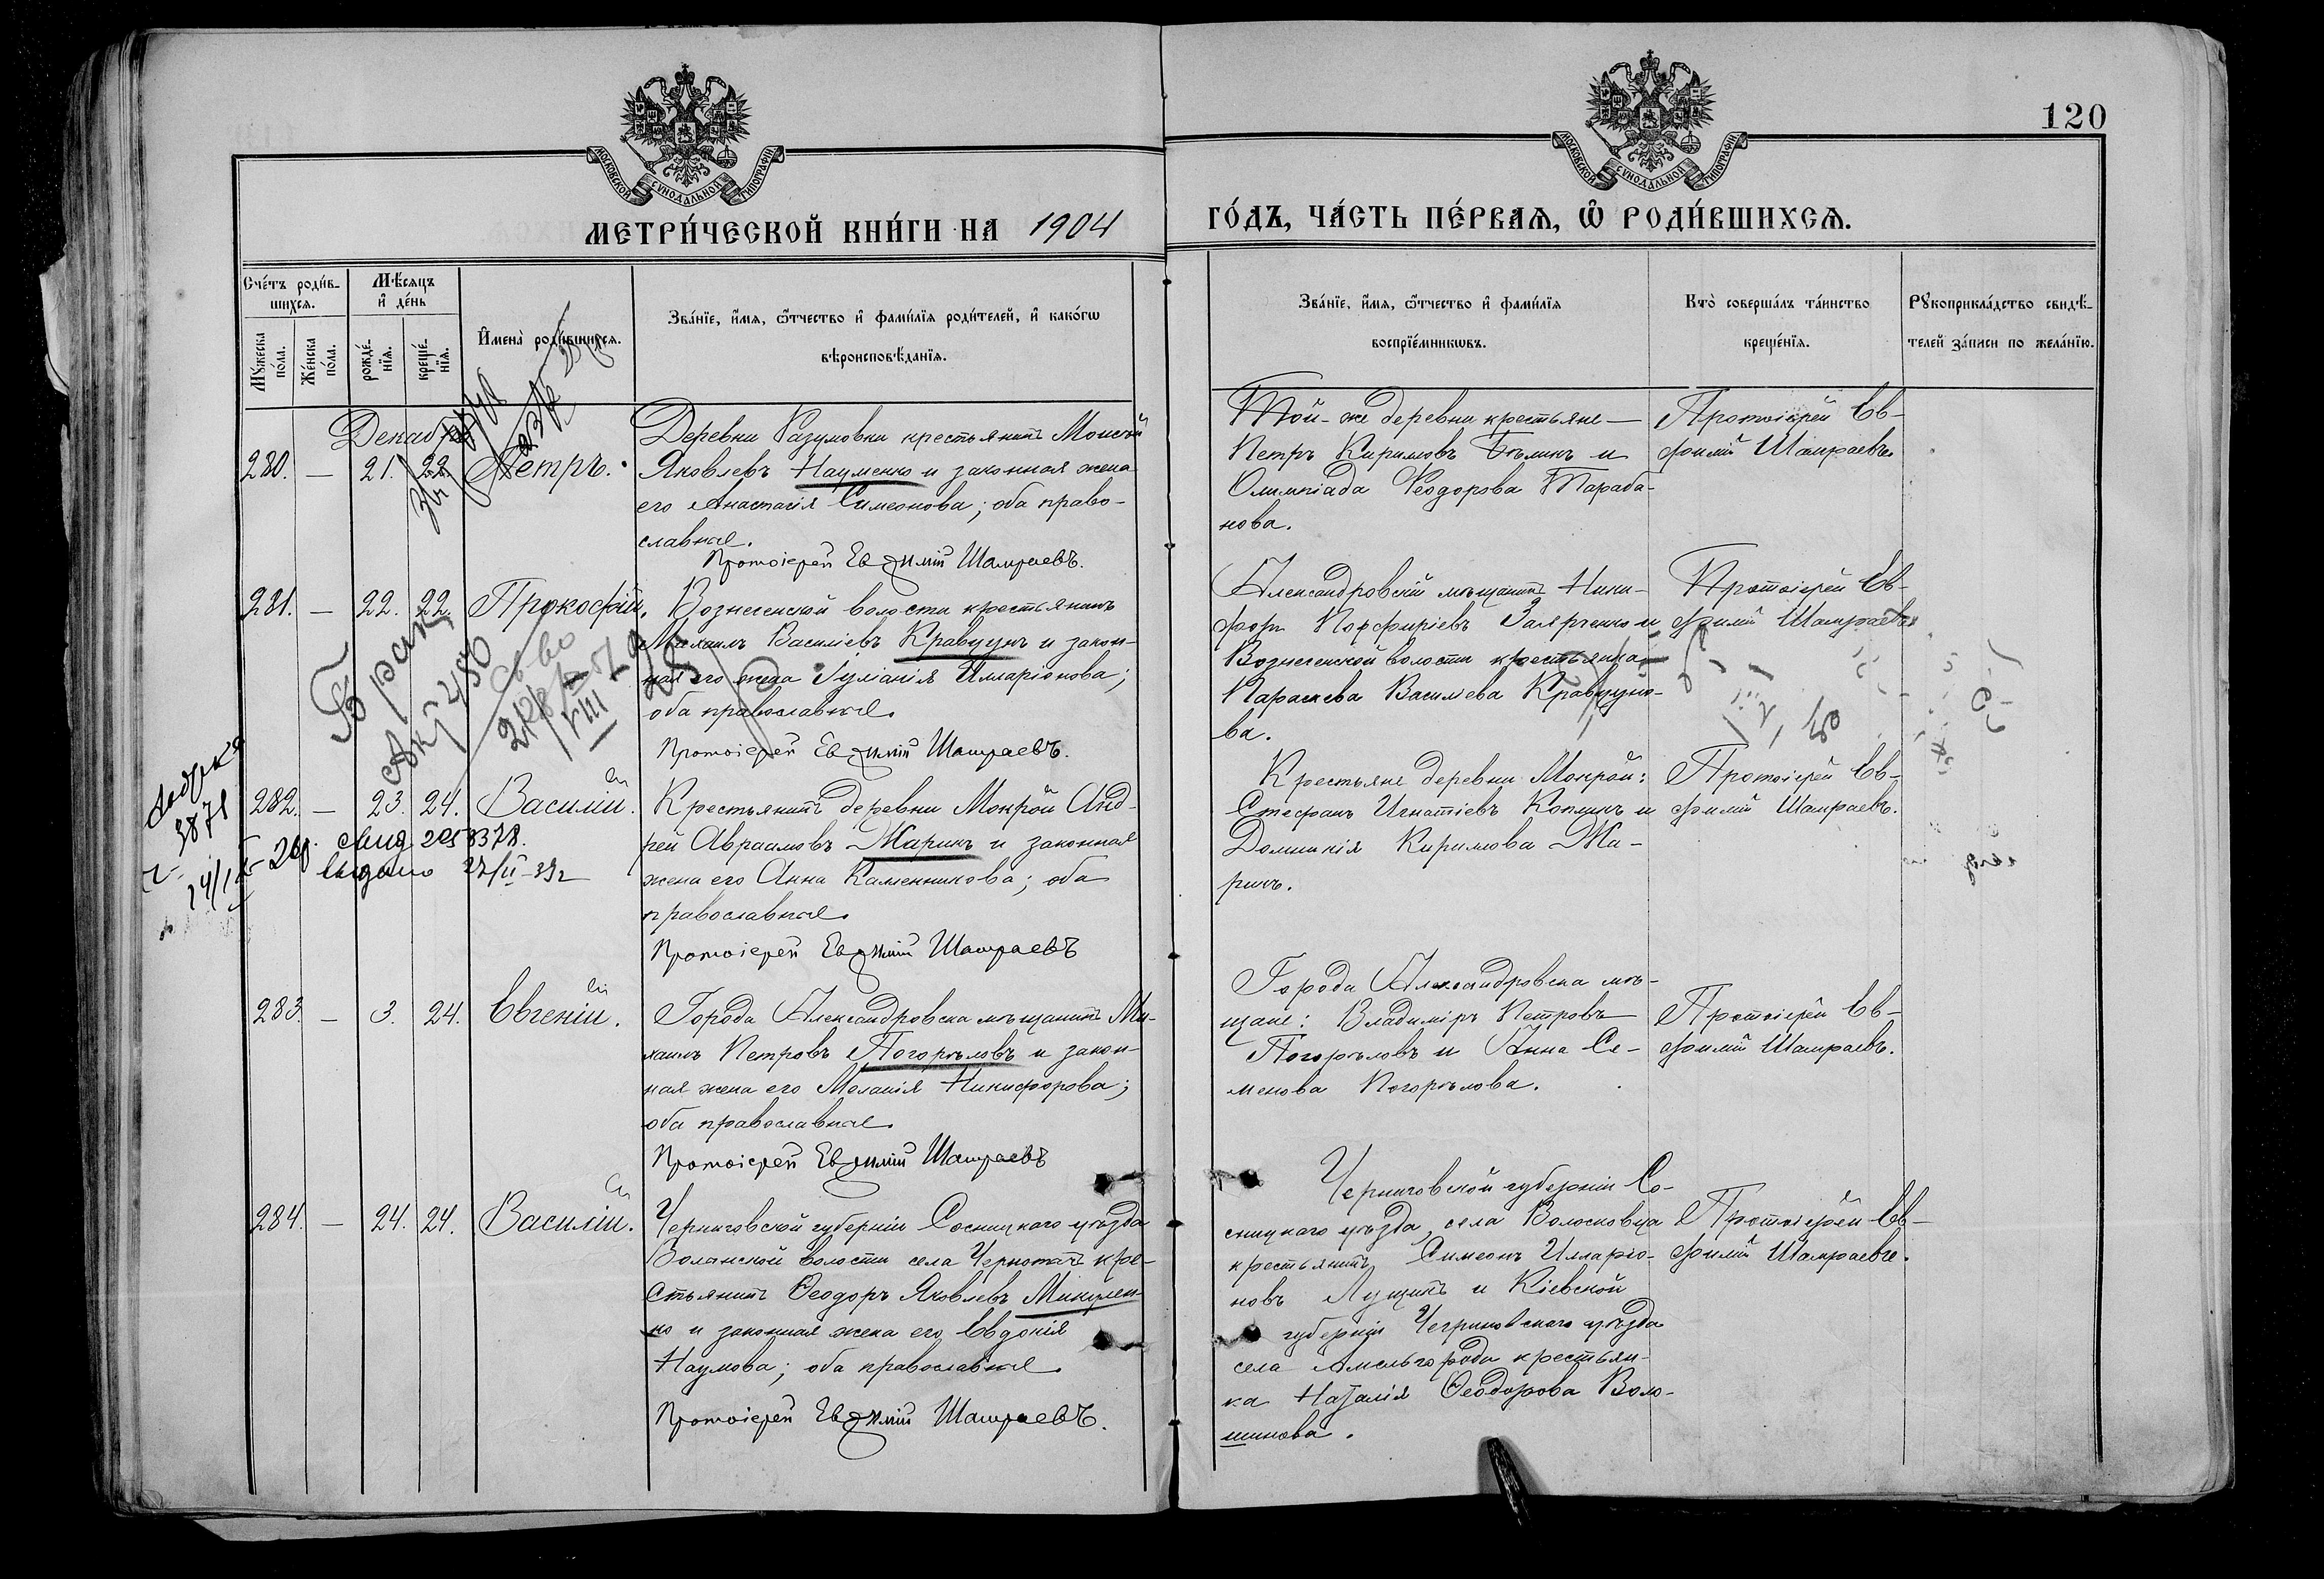 МОСКОВСКОЙ СѴНОДАЛЬНОЙ ТИПОГРАФІИ
МОСКОВСКОЙ СѴНОДАЛЬНОЙ ТИПОГРАФІИ
120
МЕТРИ́ЧЕСКОЙ КНИ́ГИ НА 1904
ГО́ДЪ, ЧА́СТЬ ПЕ́РВАѦ, Ѡ҆ РОДИ́ВШИХСѦ.
Сче́тъ роди́в-
шихсѧ.
Мꙋ́жеска по́ла.
Же́нска по́ла.
Мѣ́сѧцъ
и҆ де́нь
рожде́-
нїѧ.
креще́-
нїѧ.
И҆мена̀ роди́вшихсѧ.
Зва́нїе, и҆́мѧ, ѻ҆́тчество и҆ фами́лїѧ роди́телей, и҆ како́гѡ
вѣроисповѣ́данїѧ.
Зва́нїе, и҆́мѧ, ѻ҆́тчество и҆ фами́лїѧ
воспрїе́мникѡвъ.
Кто̀ соверша́лъ та́инство
креще́нїѧ.
Рꙋкоприкла́дство свидѣ́-
телей за́писи по жела́нїю.
Декабрь
280. — 21. 22. Петръ.
Деревни Разумовки крестьянинъ Моисей
Яковлевъ Науменко и законная жена
его Анастасія Симеонова; оба право-
славные.
Протоіерей Евфимій Шамраевъ.
Той-же деревни крестьяне —
Петръ Кириловъ Бѣликъ и
Олимпіада Ѳеодорова Тараба-
нова.
Протоіерей Ев-
фимій Шамраевъ.
281. — 22. 22. Прокофій.
Вознесенской волости крестьянинъ
Михаилъ Василіевъ Кравцунъ и закон-
ная его жена Іуліанія Илларіонова;
оба православные.
Протоіерей Евфимій Шамраевъ.
Александровскій мѣщанинъ Ники-
форъ Порфиріевъ и
Вознесенской волости крестьянка
Параскева Васильева Кравцуно-
ва.
Протоіерей Ев-
фимій Шамраевъ
Брак
282. — 23. 24. Василій.
3878
выдано
Крестьянинъ деревни Мокрой Анд-
рей Авраамовъ Жаринъ и законная
жена его Анна Каленникова; оба
православные.
Протоіерей Евфимій Шамраевъ
Крестьяне деревни Мокрой:
Стефанъ Игнатіевъ и
Домникія Кирилова Жа-
ринъ.
Протоіерей Ев-
фимій Шамраевъ.
283. — 3. 24. Евгеній.
Города Александровска мѣщанинъ Ми-
хаилъ Петровъ Погорѣловъ и закон-
ная жена его Меланія Никифорова;
оба православные.
Протоіерей Евфимій Шамраевъ
Города Александровска мѣ-
щане: Владиміръ Петровъ
Погорѣловъ и Анна Се-
менова Погорѣлова.
Протоіерей Ев-
фимій Шамраевъ.
284. — 24. 24. Василій.
Черниговской губерніи Сосницкаго уѣзда
Волынской волости села кре-
стьянинъ Ѳеодоръ Яковлевъ Микулен-
ко и законная жена его Евдокія
Наумова; оба православные.
Протоіерей Евфимій Шамраевъ.
Черниговской губерніи Со-
сницкаго уѣзда, села Волосковца
крестьянинъ Симеонъ Илларіо-
новъ Лущикъ и Кіевской
губерніи Чегринсκаго уѣзда
села крестьян-
ка Наталія Ѳеодорова Воло-
шинова.
Протоіерей Ев-
фимій Шамраевъ.